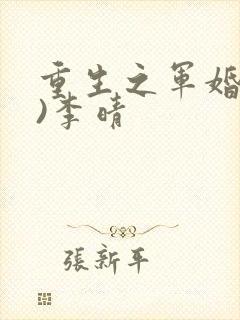 重生之軍婚
)李晴
張新平